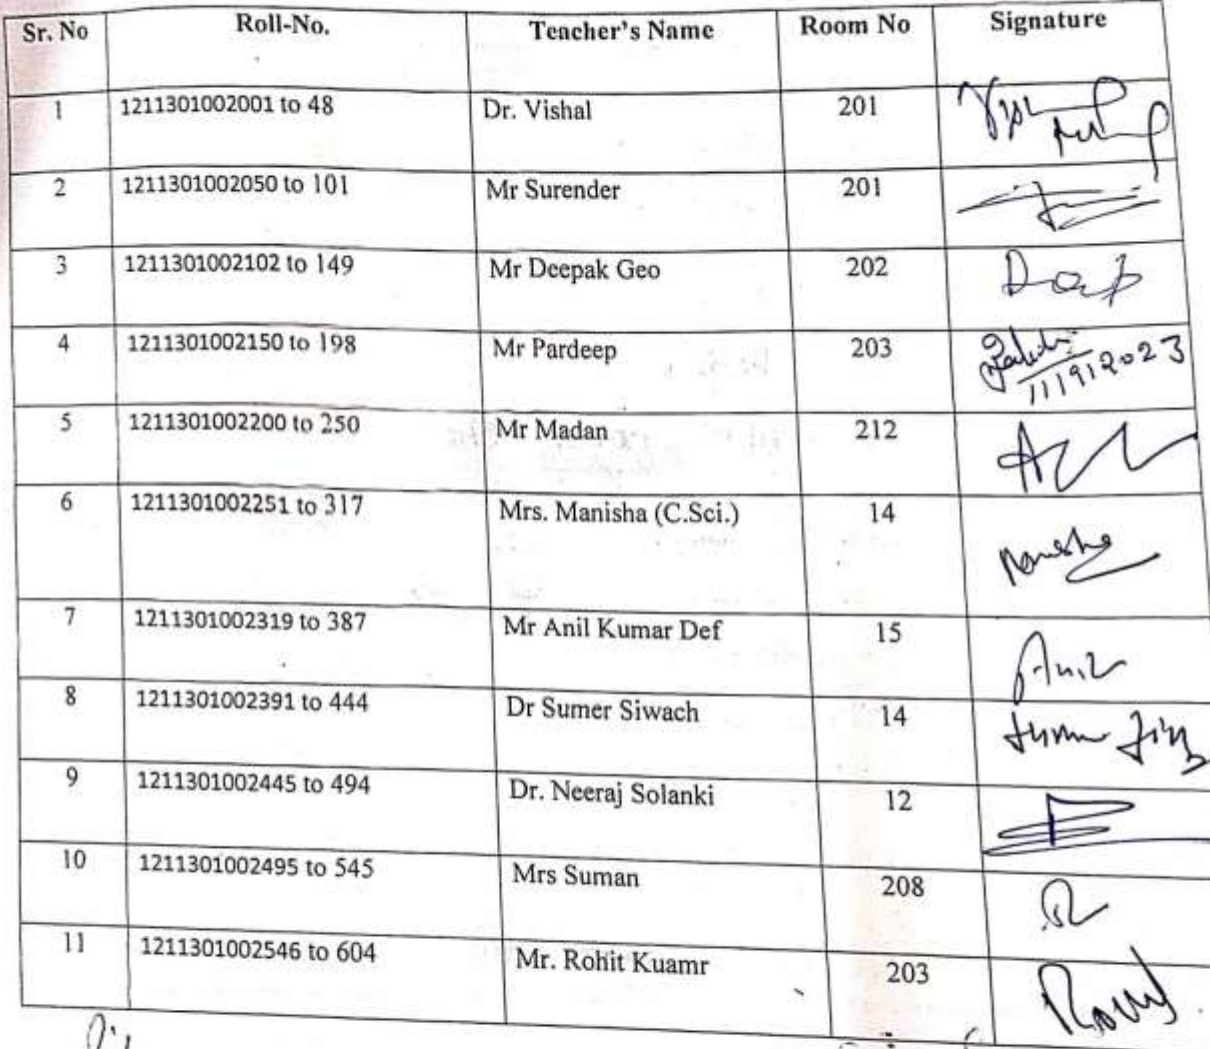 Sr. No Roll-No. Teacher's Name Room No Signature
1 1211301002001 to 48 Dr. Vishal 201
2 1211301002050 to 101 Mr Surender 201
3 1211301002102 to 149 Mr Deepak Geo 202
4 1211301002150 to 198 Mr Pardeep 203 11/9/2023
5 1211301002200 to 250 Mr Madan 212
6 1211301002251 to 317 Mrs. Manisha (C.Sci.) 14 Manisha
7 1211301002319 to 387 Mr Anil Kumar Def 15 Anil
8 1211301002391 to 444 Dr Sumer Siwach 14
9 1211301002445 to 494 Dr. Neeraj Solanki 12
10 1211301002495 to 545 Mrs Suman 208
11 1211301002546 to 604 Mr. Rohit Kuamr 203